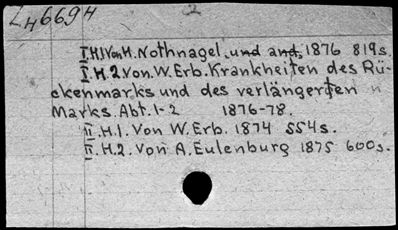 L46694 2
I.H.1 Von H. Nothnagel, und and, 1876 819s.
I.H.2. Von. W. Erb. Krankheiten des Rü-
ckenmarks und des verlängerten
Marks. Abt. 1-2 1876-78.
II.H.1. Von W. Erb. 1874 554s.
II.H.2. Von A. Eulenburg 1875 600s.